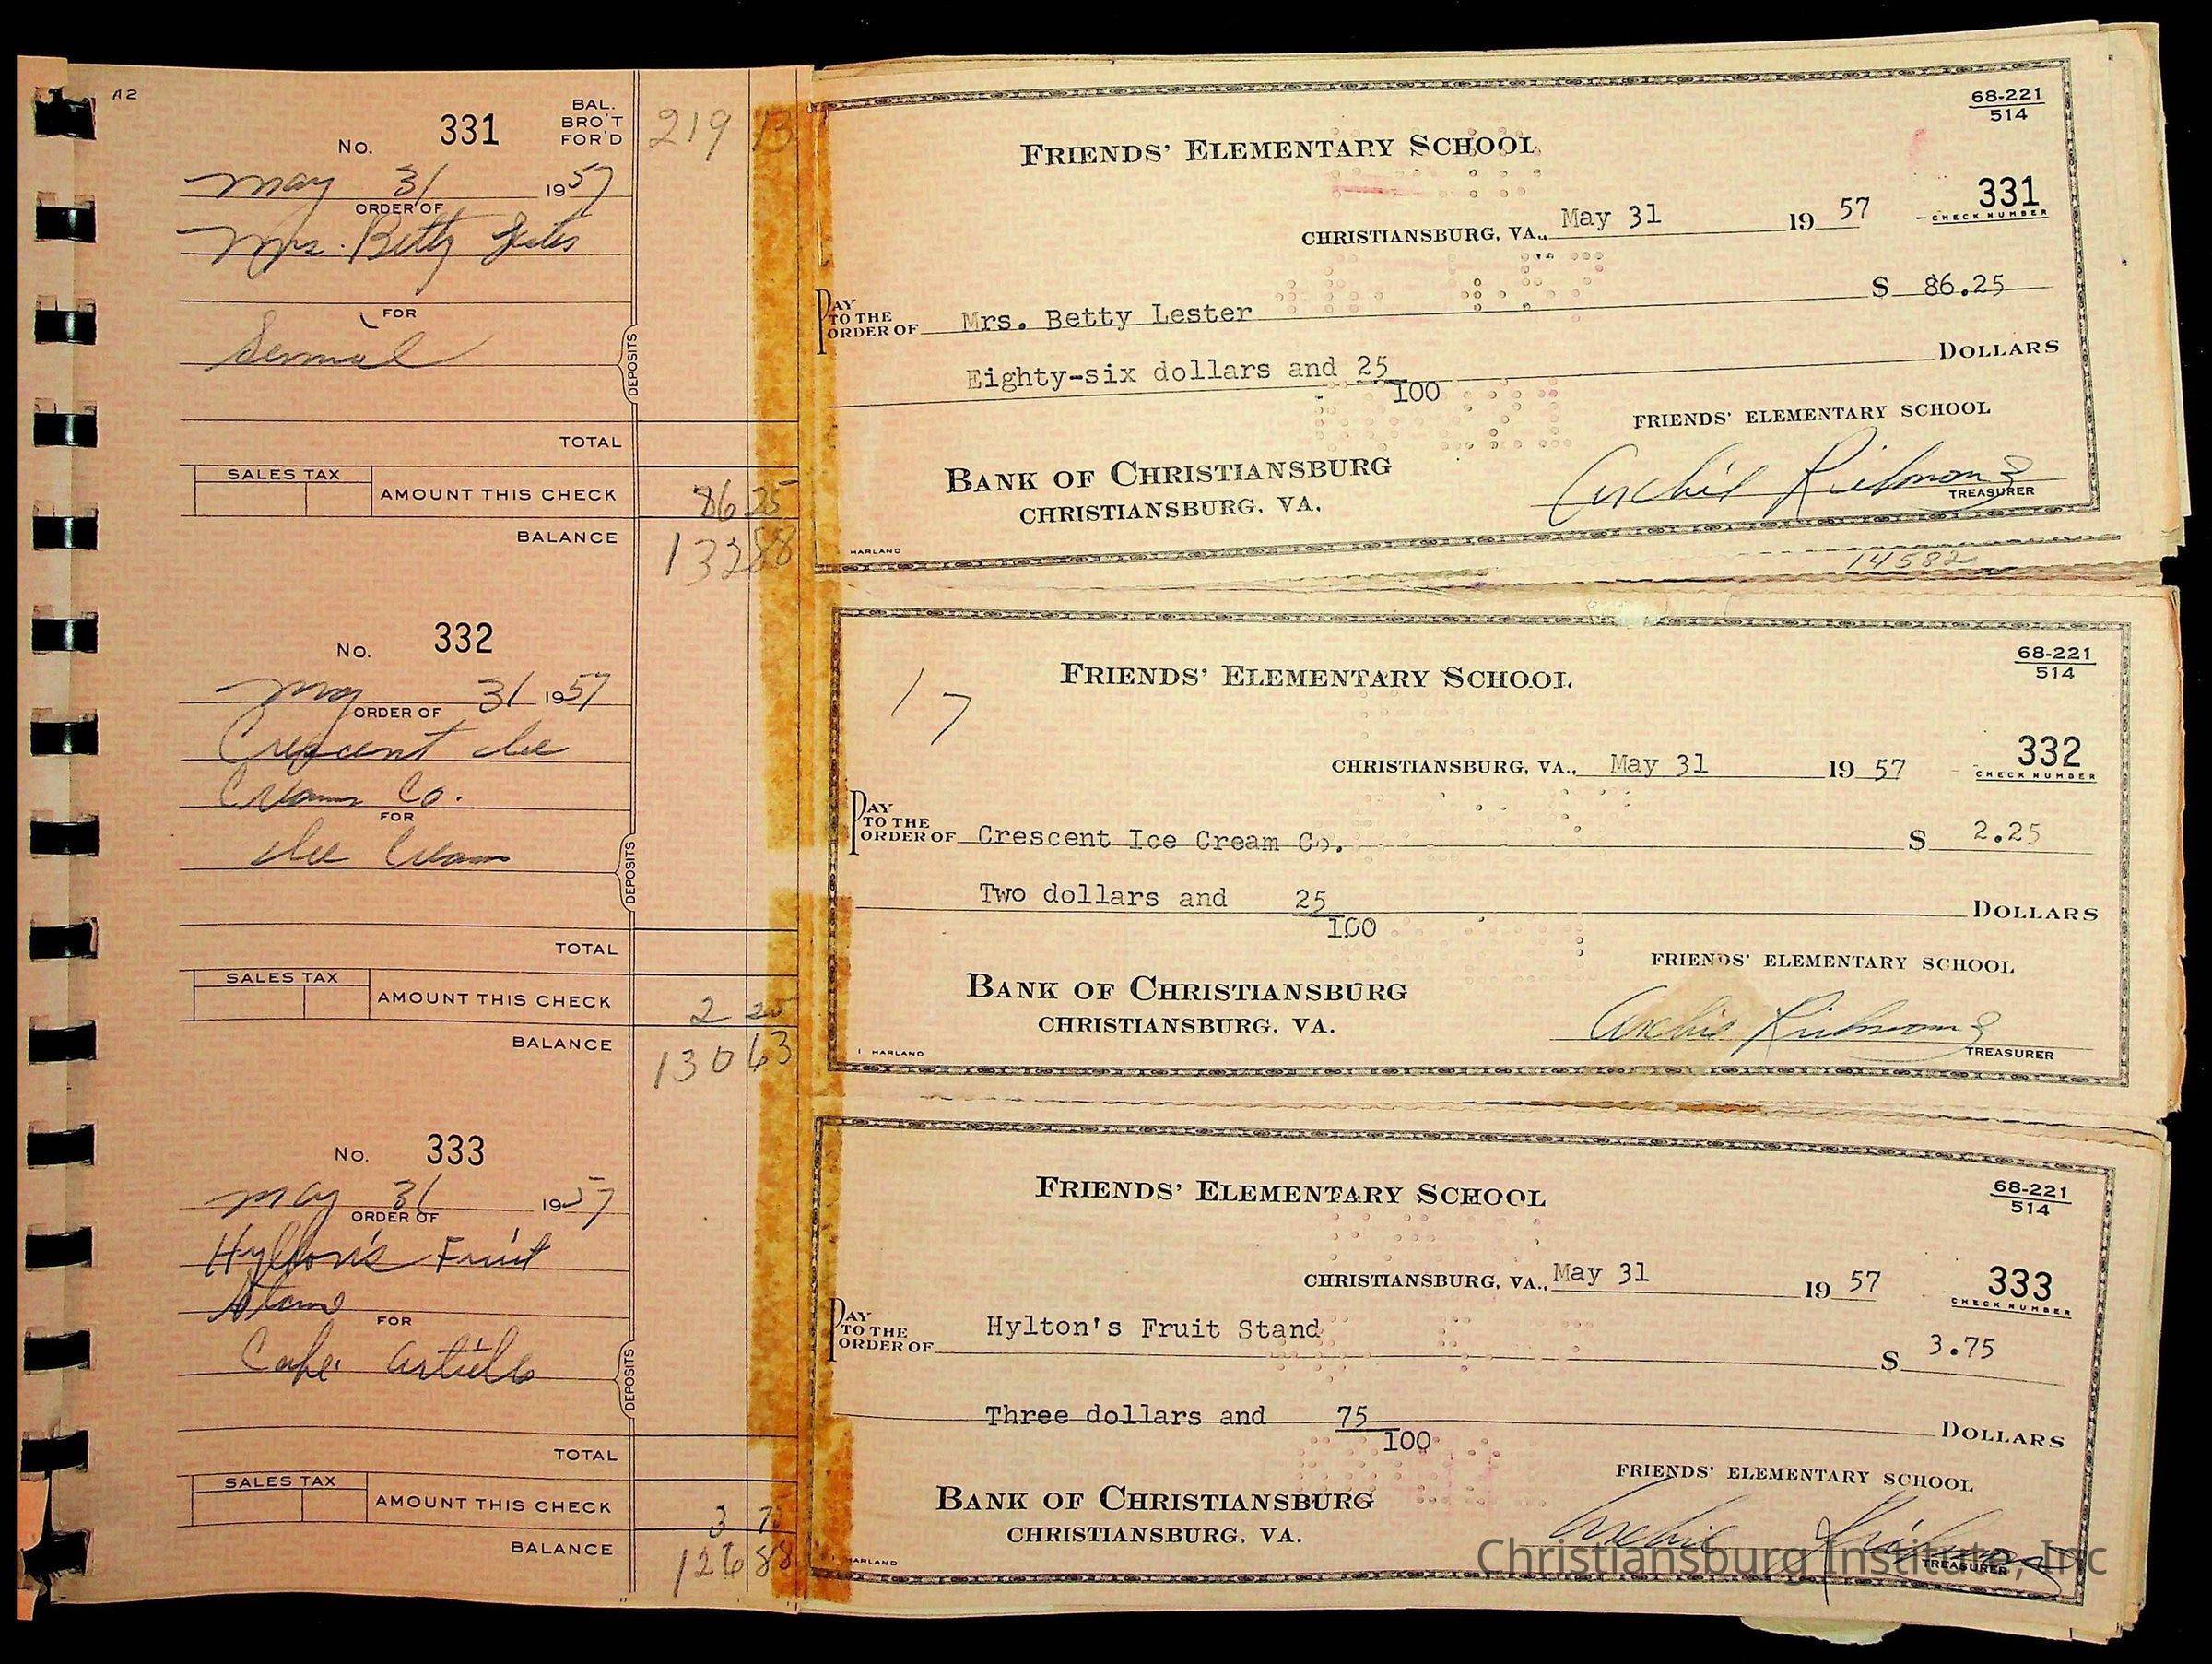 A2
No. 331
BAL. BRO'T FOR'D 219 13
May 31 1957
ORDER OF
Mrs. Betty
FOR
DEPOSITS
TOTAL
SALES TAX
AMOUNT THIS CHECK 86 25
BALANCE 132 88
No. 332
May 31 1957
ORDER OF
Crescent Ice
Cream Co.
FOR
Ice Cream
DEPOSITS
TOTAL
SALES TAX
AMOUNT THIS CHECK 2 25
BALANCE 130 63
No. 333
May 31 1957
ORDER OF
Hylton's Fruit
Stand
FOR
Cafe. Articles
DEPOSITS
TOTAL
SALES TAX
AMOUNT THIS CHECK 3 75
BALANCE 126 88
68-221
514
FRIENDS' ELEMENTARY SCHOOL
331
CHECK NUMBER
CHRISTIANSBURG, VA., May 31 19 57
PAY TO THE ORDER OF Mrs. Betty Lester $ 86.25
Eighty-six dollars and 25/100 DOLLARS
FRIENDS' ELEMENTARY SCHOOL
BANK OF CHRISTIANSBURG
CHRISTIANSBURG, VA.
Archie Richmond
TREASURER
HARLAND
14582
68-221
514
FRIENDS' ELEMENTARY SCHOOL
17
332
CHECK NUMBER
CHRISTIANSBURG, VA., May 31 19 57
PAY TO THE ORDER OF Crescent Ice Cream Co. $ 2.25
Two dollars and 25/100 DOLLARS
FRIENDS' ELEMENTARY SCHOOL
BANK OF CHRISTIANSBURG
CHRISTIANSBURG, VA.
Archie Richmond
TREASURER
HARLAND
68-221
514
FRIENDS' ELEMENTARY SCHOOL
333
CHECK NUMBER
CHRISTIANSBURG, VA., May 31 19 57
PAY TO THE ORDER OF Hylton's Fruit Stand $ 3.75
Three dollars and 75/100 DOLLARS
FRIENDS' ELEMENTARY SCHOOL
BANK OF CHRISTIANSBURG
CHRISTIANSBURG, VA.
Archie Richmond
TREASURER
HARLAND
Christiansburg Institute, Inc